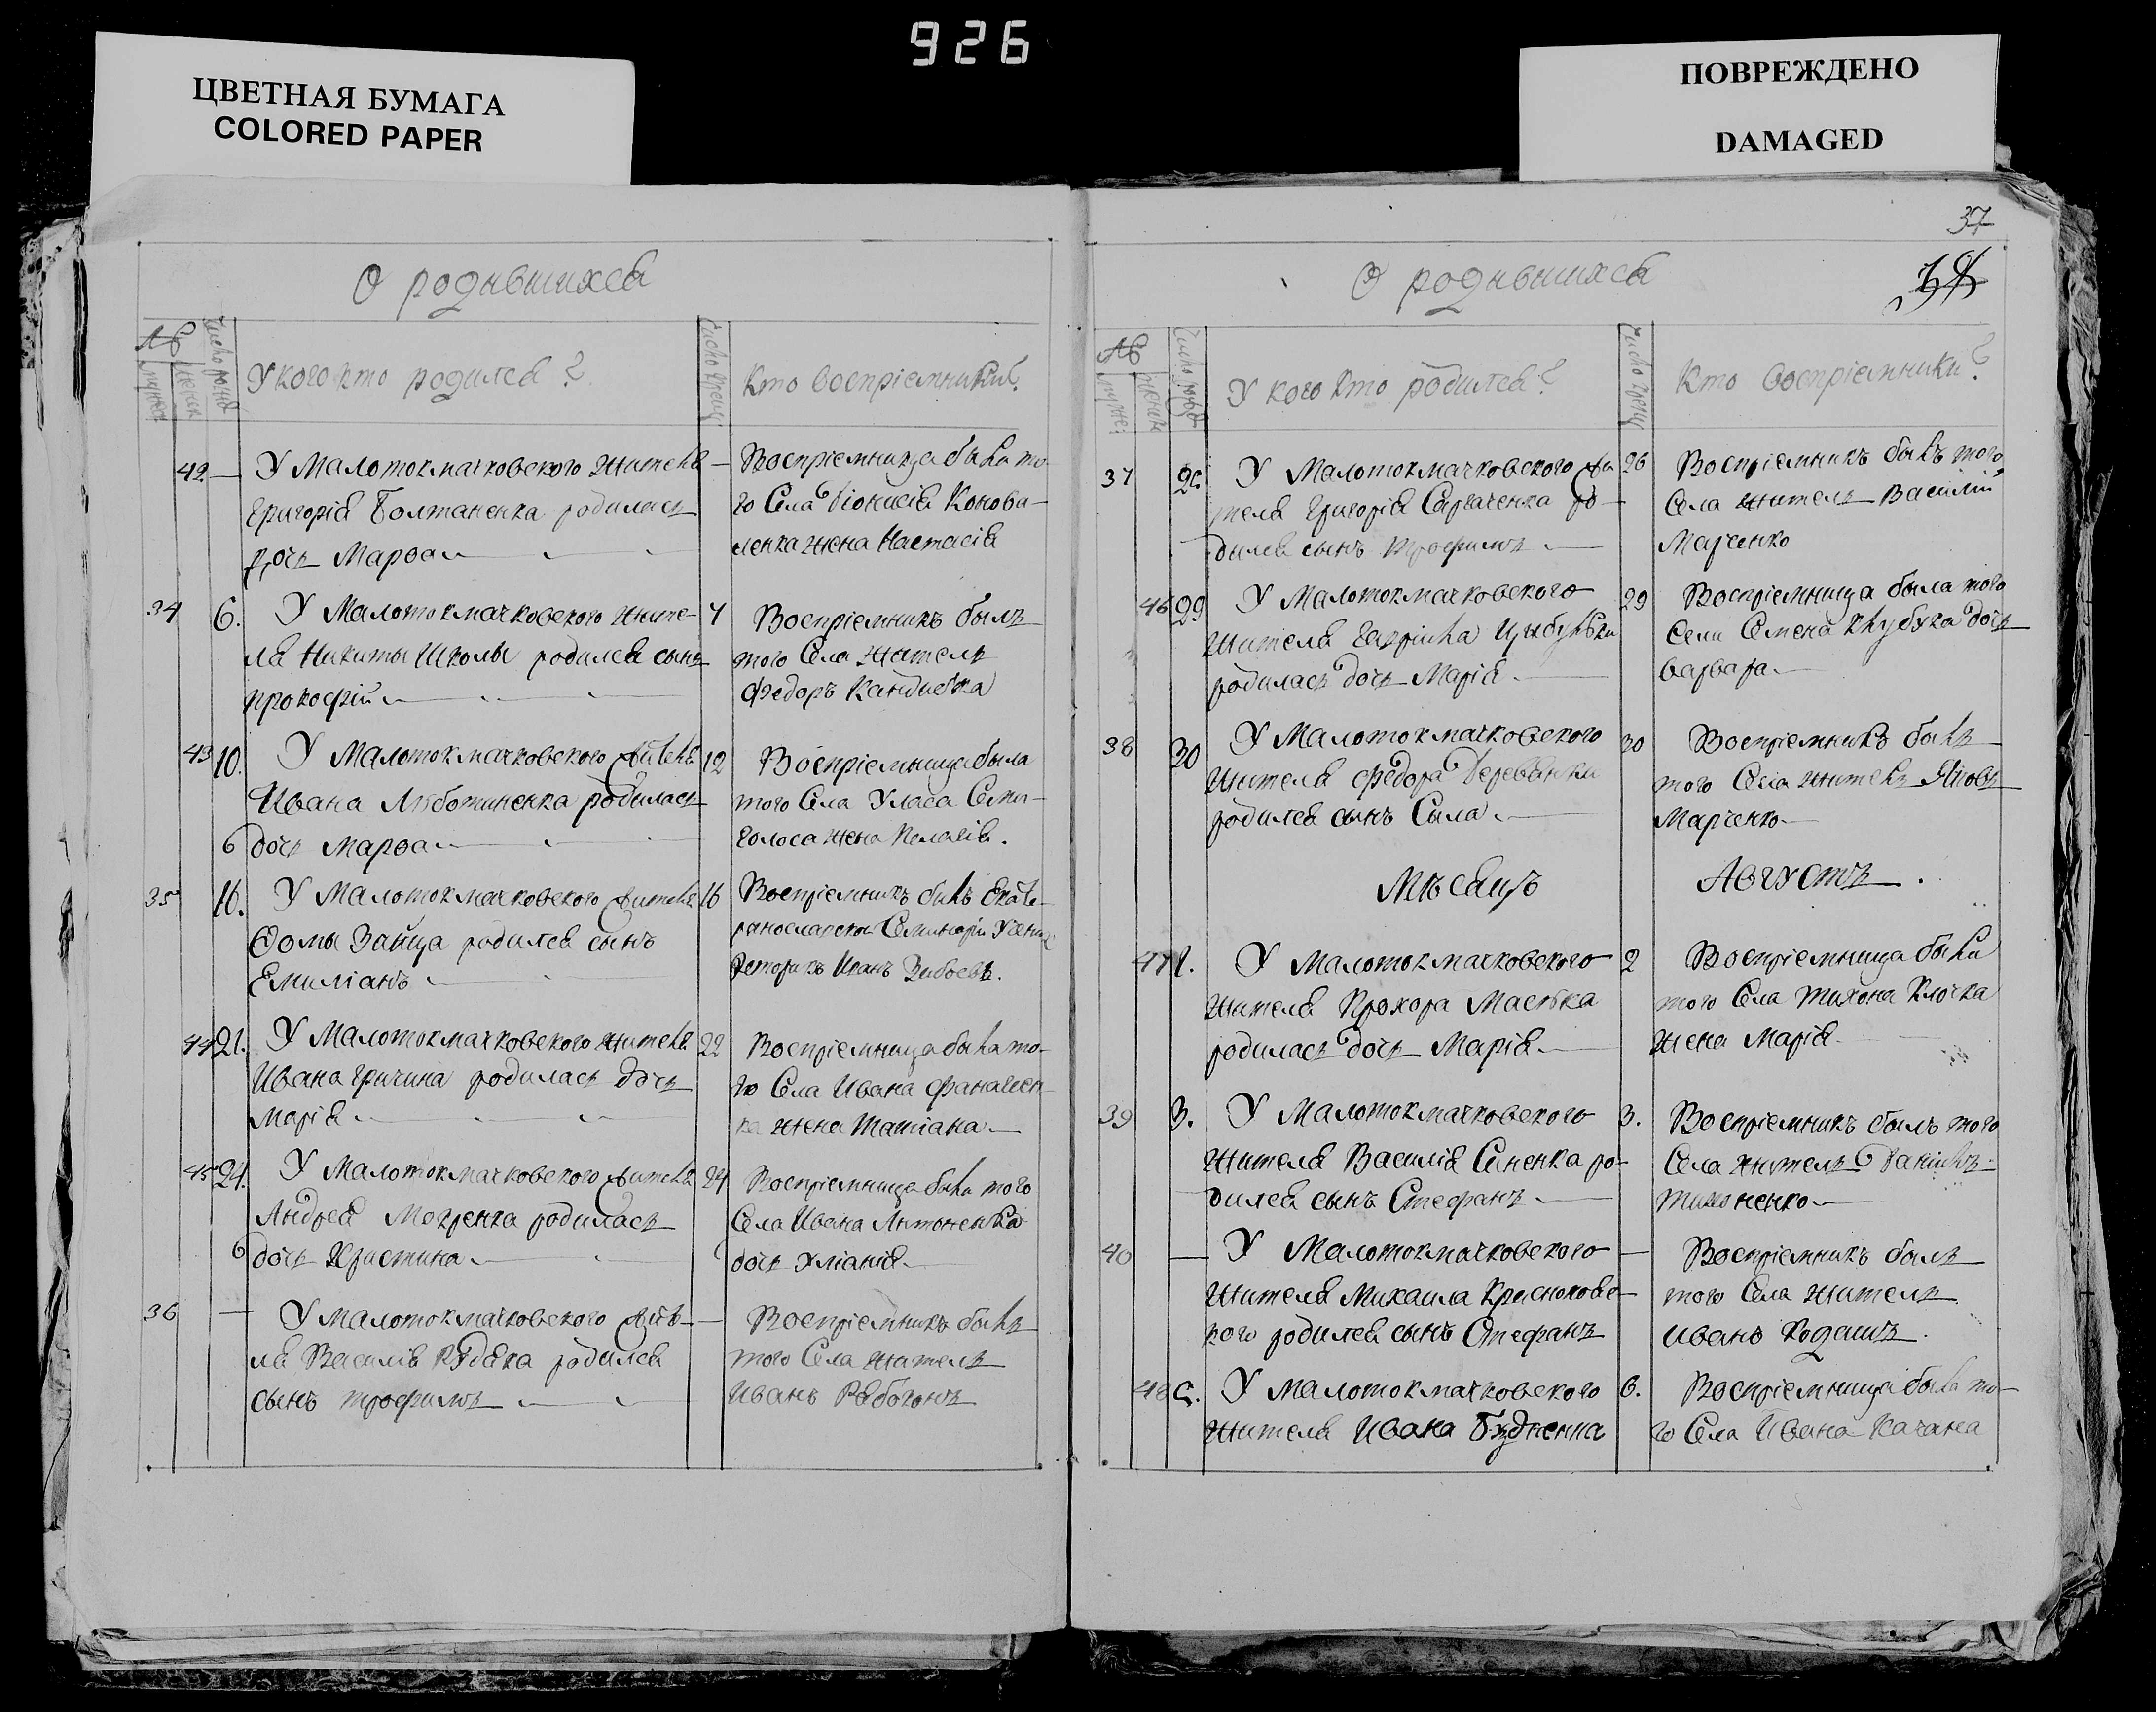 926
ЦВЕТНАЯ БУМАГА
COLORED PAPER
ПОВРЕЖДЕНО
DAMAGED
О родившихся
№
Число рожд
мужеск
женск
У кого кто родился?
Число крещ:
Кто воспріемники?
42 — У Малотокмачковского жителя —
Григорія Болтаненка родилась
дочь Марѳа
Воспріемница была то-
го Села Діонисія Конова-
ленка жена Настасія
34 6. У Малотокмачковского жите- 7
ля Никиты Школы родился сынъ
Прокофій
Воспріемникъ былъ
того Села житель
Федоръ Кандыбка
43 10. У Малотокмачковского жителя 12
Ивана Люботиненка родилась
дочь Марѳа
Воспріемница была
того Села Уласа Семи-
голоса жена Пелагія.
35 16. У Малотокмачковского жителя 16
Ѳомы Зайца родился сынъ
Емиліанъ
Воспріемникъ былъ Екате-
ринославской Семинаріи Ученикъ
Реторикъ Иванъ
44 21. У Малотокмачковского жителя 22
Ивана Гричина родилась дочь
Марія
Воспріемница была то-
го Села Ивана Фаначен-
ка жена Татіана
45 24. У Малотокмачковского жителя 24
Андрея родилась
дочь Христина
Воспріемница была того
Села Ивана Антоненка
дочь Уліанія
36 — У Малотокмачковского жите- —
ля Василія Кудака родился
сынъ Трофимъ
Воспріемникъ былъ
того Села житель
Иванъ Рябоконь
37
О родившихся
№
мужес:
женск
Число рожд
У кого кто родился?
Число крещ
Кто воспріемники?
37 У Малотокмачковского жи 26
теля Григорія ро-
дился сынъ Трофимъ
Воспріемникъ былъ того
Села житель Василій
Марченко
46 29 У Малотокмачковского 29
жителя Гавріила Цыбульки
родилась дочь Марія
Воспріемница была того
Села Семена дочь
Варвара
38 30 У Малотокмачковского 30
жителя Федора Деревянки
родился сынъ Сила
Воспріемникъ былъ
того Села житель Яковъ
Марченко
Мѣсяцъ Августъ.
47 1. У Малотокмачковского 2
жителя Прохора
родилась дочь Марія
Воспріемница была
того Села Тихона Клочка
жена Марія
39 3. У Малотокмачковского 3.
жителя Василія Синенка ро-
дился сынъ Стефанъ
Воспріемникъ былъ того
Села житель Даніилъ
Тихоненко
40 — У Малотокмачковского —
жителя Михаила
кого родился сынъ Стефанъ
Воспріемникъ былъ
того Села житель
Иванъ Кодашъ.
48 5. У Малотокмачковского 6.
жителя Ивана
Воспріемница была то-
го Села Ивана Качана